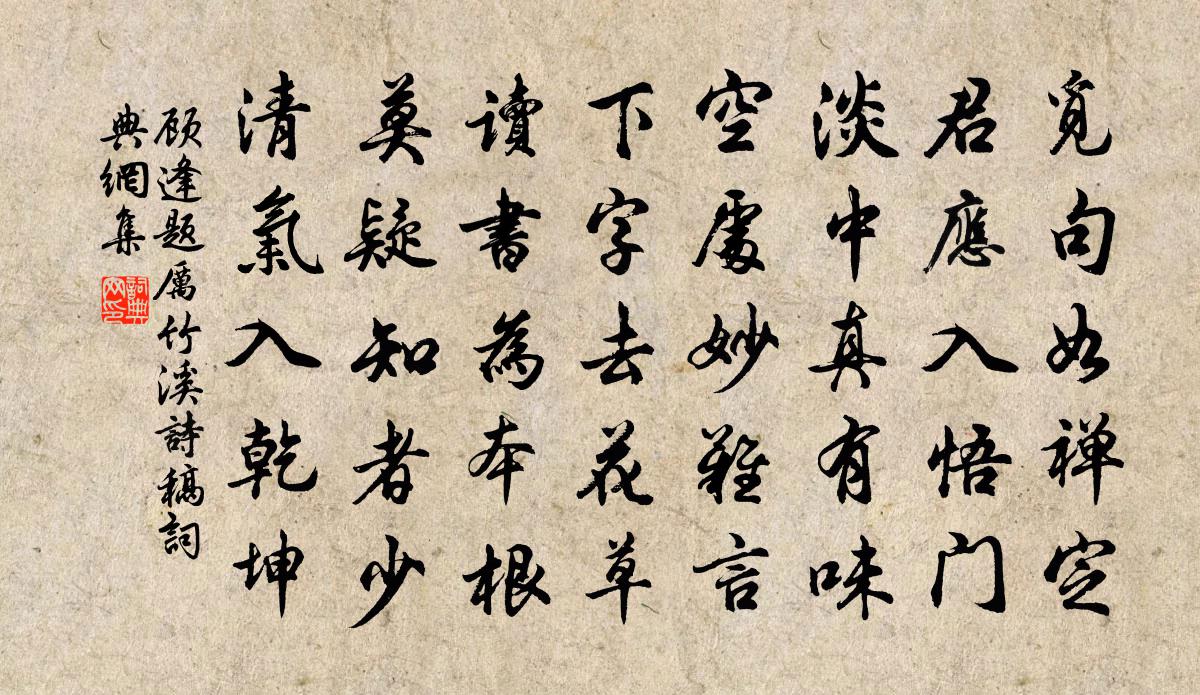 覓句如禅定
君應入悟门
淡中真有味
空處妙難言
下字去花草
讀書為本根
莫疑知者少
清氣入乾坤
顾逢题厲竹溪詩稿詞
典網集
詞典
网印